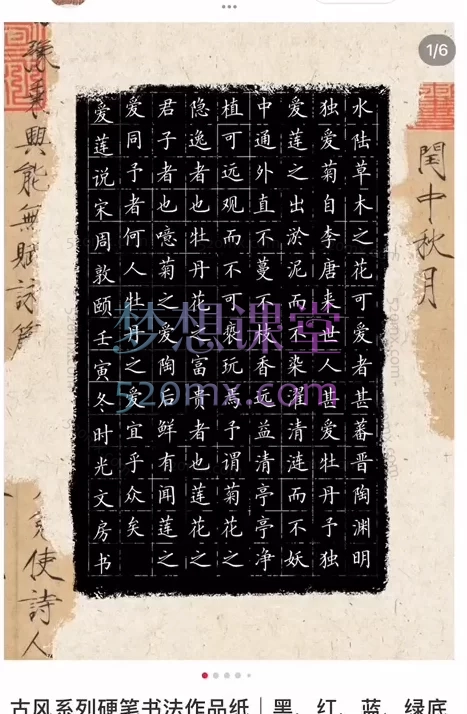 1/6
閏中秋月
水陆草木之花可爱者甚蕃晋陶渊明
独爱菊自李唐来世人甚爱牡丹予独
爱莲之出淤泥而不染濯清涟而不妖
中通外直不蔓不枝香远益清亭亭净
植可远观而不可亵玩焉予谓菊花之
隐逸者也牡丹花之富贵者也莲花之
君子者也噫菊之爱陶后鲜有闻莲之
爱同予者何人牡丹之爱宜乎众矣
爱莲说宋周敦颐壬寅冬时光文房书
興能無賦詠篇
使詩人
梦想课堂
520mx.com
古风系列硬笔书法作品纸｜黑、红、蓝、绿底